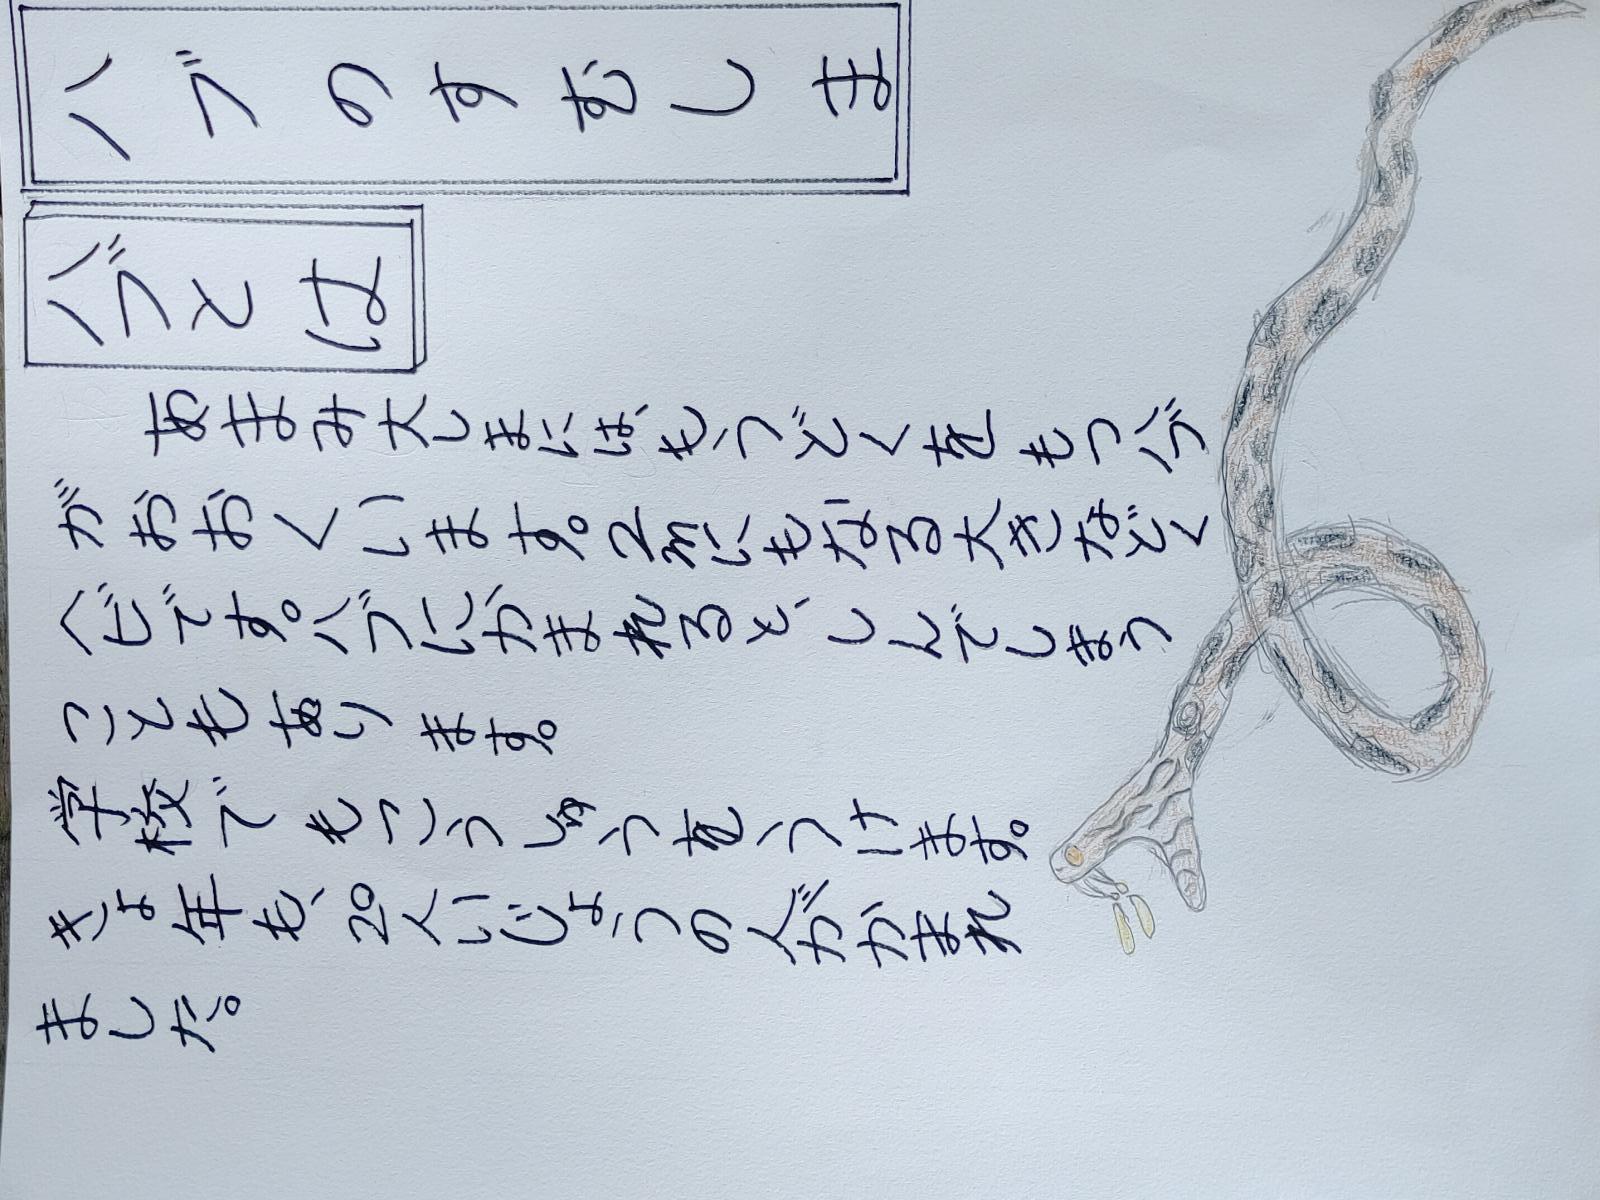 ハブのすむしま
ハブとは
あまみ大しまにはもうどくをもつハブ
がおおくいます。2mにもなる大きなどく
ヘビです。ハブにかまれるとしんでしまう
こともあります。
学校でもこうしゅうをうけます。
きょ年も、20人いじょうの人がかまれ
ました。